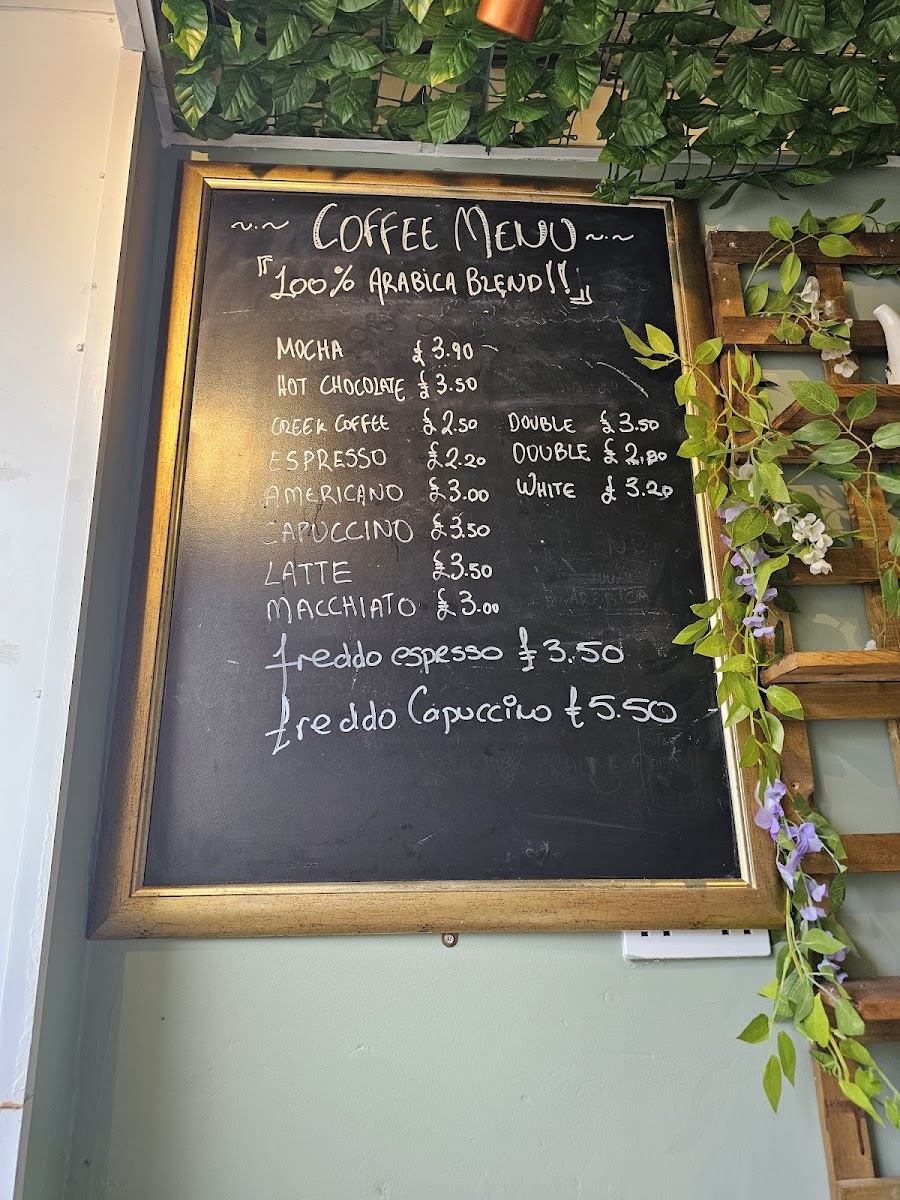 ~.~ COFFEE MENU ~.~
『100% ARABICA BLEND!!』
MOCHA £3.90
HOT CHOCOLATE £3.50
GREEK COFFEE £2.50 DOUBLE £3.50
ESPRESSO £2.20 DOUBLE £2.80
AMERICANO £3.00 WHITE £3.20
CAPUCCINO £3.50
LATTE £3.50
MACCHIATO £3.00
freddo espesso £3.50
freddo Capuccino £5.50